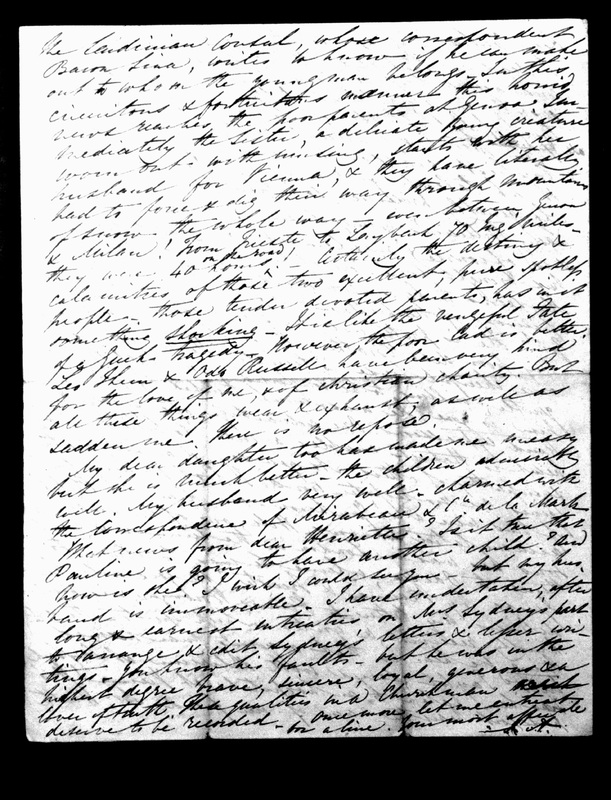 the Sardinian Consul, whose correspondent
Baron Sina, writes to know if he can make
out to whom the young man belongs. In this
circuitous & fortuitous manner this horrid
news reaches the poor parents at Genoa. Im-
mediately the sister, a delicate young creature
worn out with nursing, starts with her
husband for Vienna, & they have literally
had to force & dig their way through mountains
of snow the whole way – even between Genoa
& Milan! From Trieste to Laybach 70 Eng. miles
they were 40 hours on the road! Certainly the destiny &
calamities of those two excellent, pure spotless
people – those tender devoted parents, has in it
something shocking – It is like the vengeful Fate
of a Greek tragedy – However the poor lad is better.
Leo Thun & Odo Russell have been very kind
for the love of me, & of christian charity. But
all these things wear & exhaust, as well as
sadden me. There is no repose.
My dear daughter too has made me uneasy
but she is much better – the children
well. My husband very well – charmed with
the correspondence of Mirabeau & Cte de la Mark
What news from dear Henriette? Is it true that
Pauline is going to have another child? and
how is she? I wish I could see you – but my hus-
band is immoveable – I have undertaken, after
long & earnest intreaties on Mrs Sydney's part
to arrange & edit Sydney's letters & lesser wri-
tings – You know his faults – but he was in the
highest degree brave, sincere, loyal, generous & a
lover of truth. These qualities in a Churchman
deserve to be recorded – Once more let me entreat
for a line. Your most affectionate
S. A.